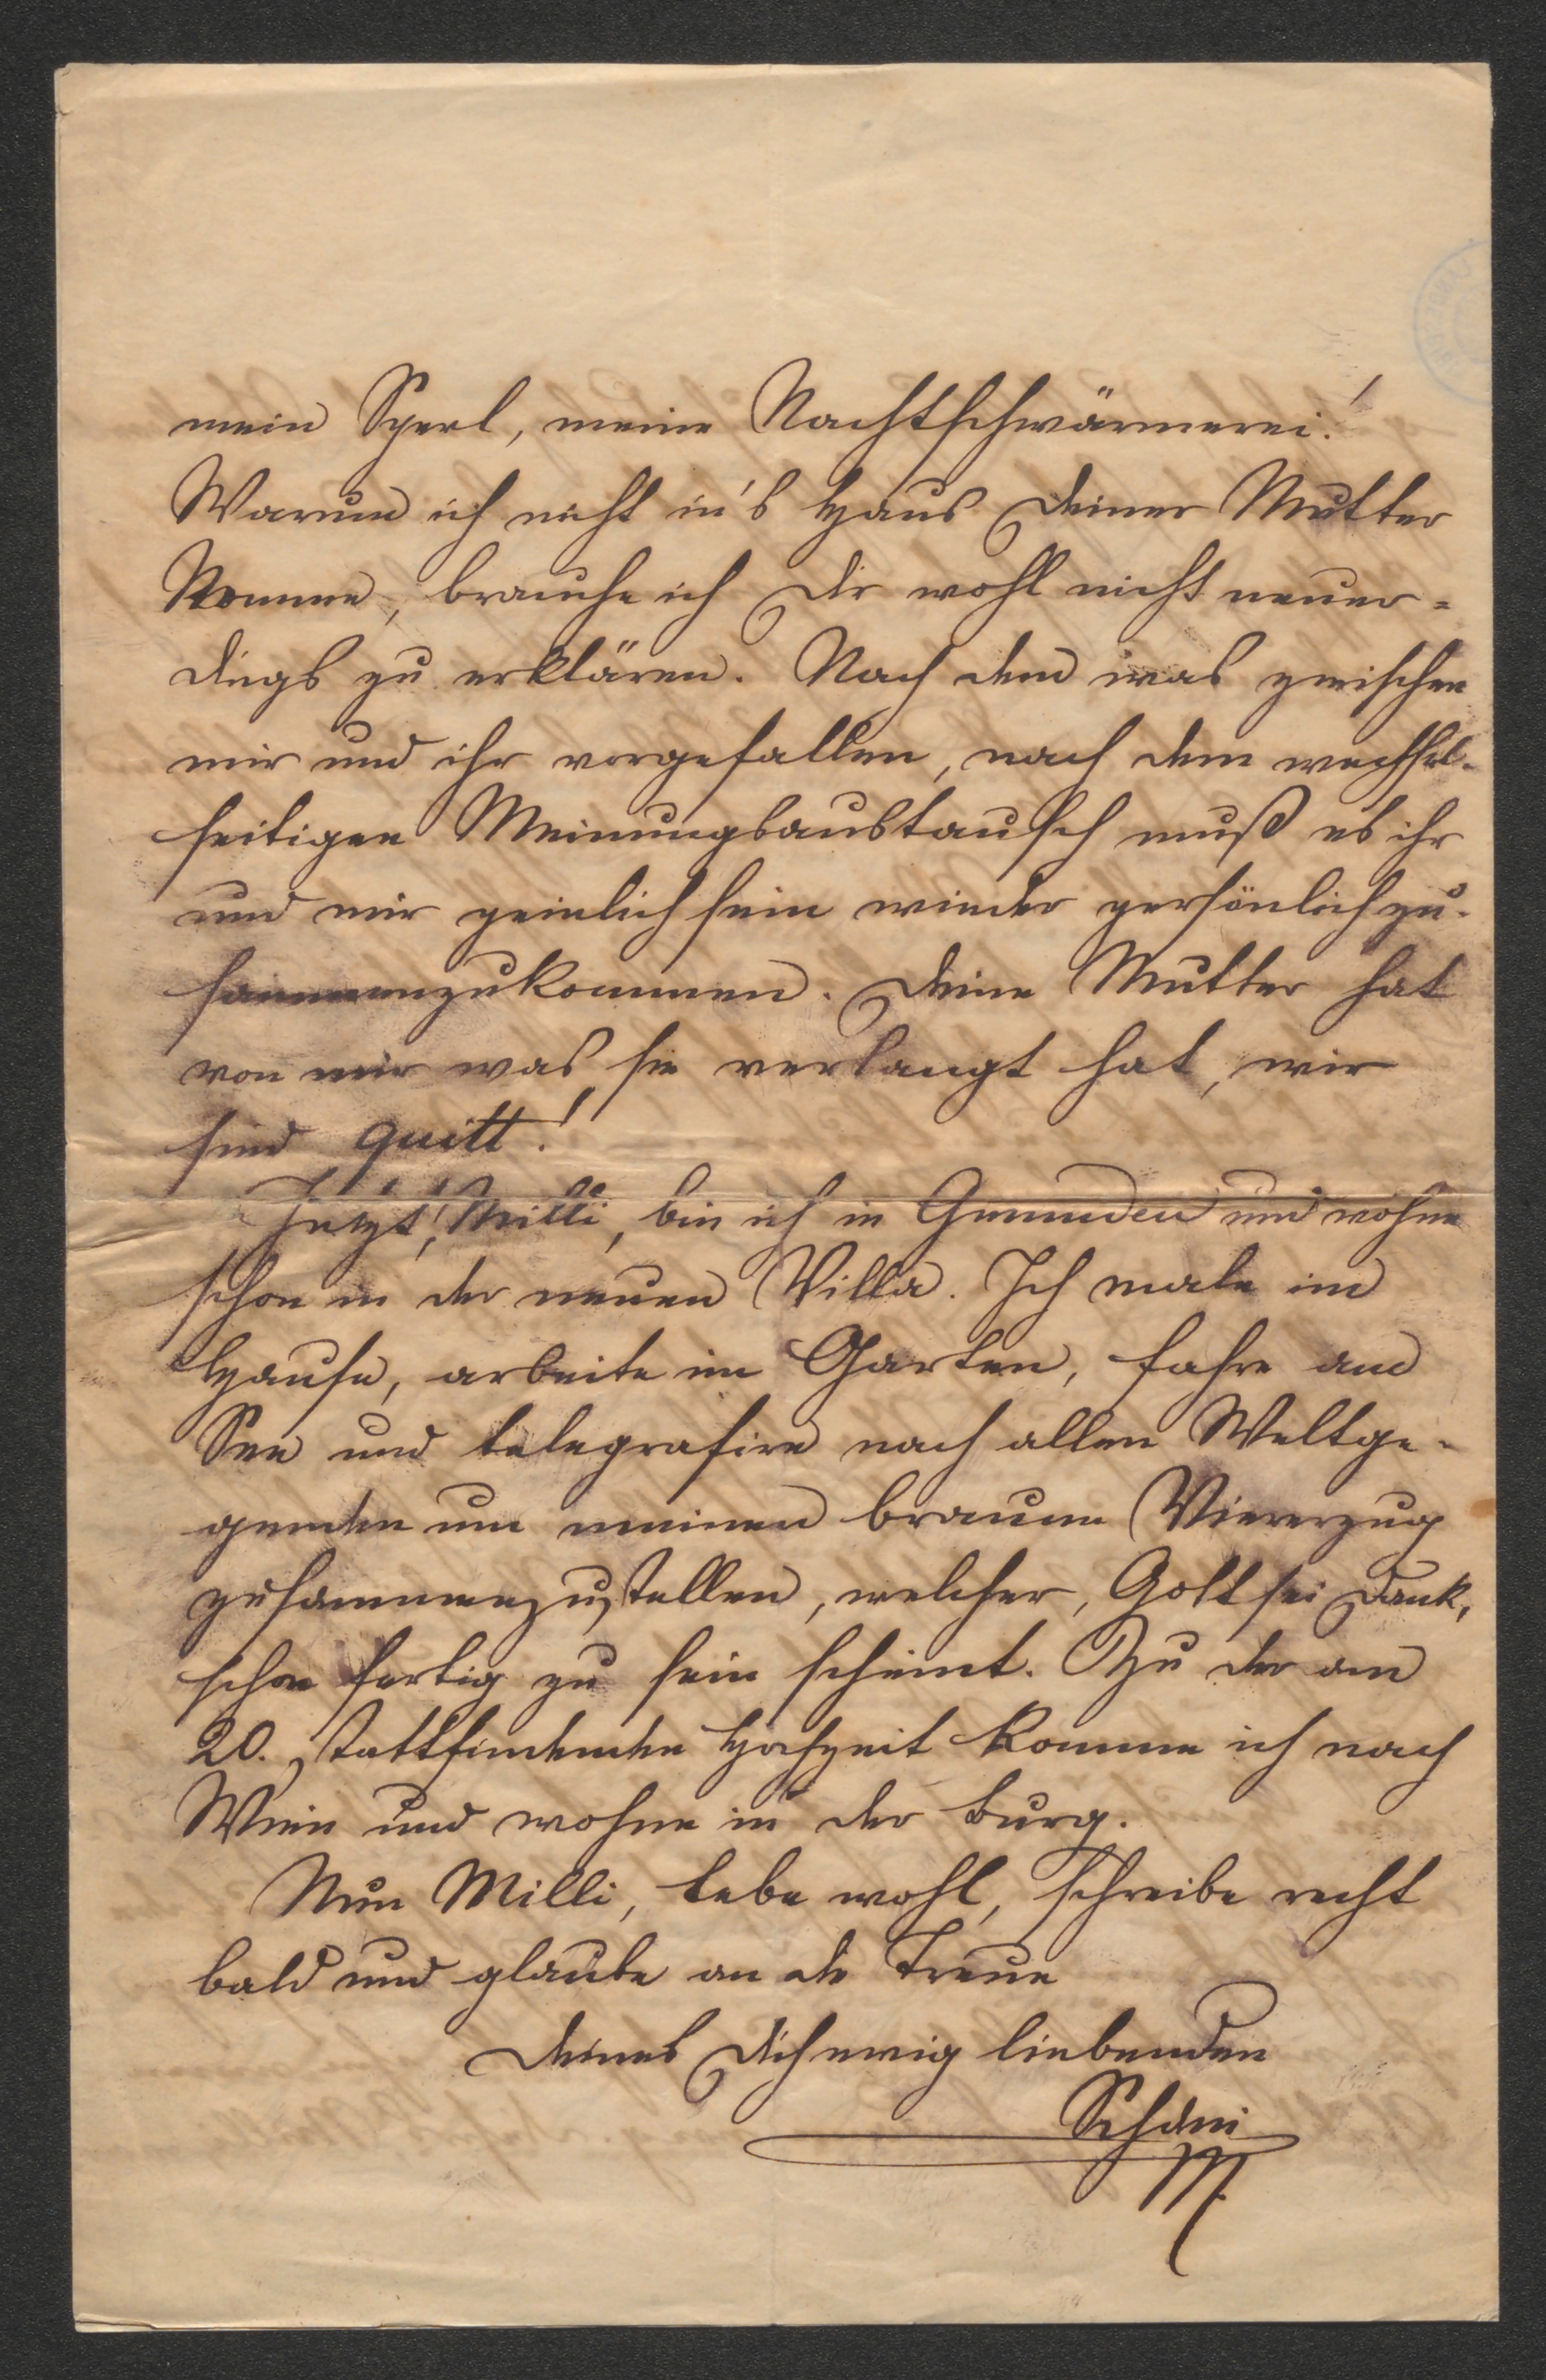 mein Sperl, meine Nachtschwärmerei!
Warum ich nicht in's Haus Deiner Mutter
komme, brauche ich Dir wohl nicht neuer-
dings zu erklären. Nach dem was zwischen
mir und ihr vorgefallen, nach dem wechsel-
seitigen Meinungsaustausch muß es ihr
und mir peinlich sein wieder persönlich zu-
sammenzukommen. Deine Mutter hat
von mir was sie verlangt hat, wir
sind quitt!
Jetzt, Milli, bin ich in Gmunden und wohne
schon in der neuen Villa. Ich male im
Hause, arbeite im Garten, fahre am
See und telegrafire nach allen Weltge-
genden um meinen braunen Viererzug
zusammenzustellen, welcher, Gott sei Dank,
schon fertig zu sein scheint. Zu der am
20. stattfindenden Hochzeit komme ich nach
Wien und wohne in der Burg.
Nun Milli, lebe wohl, schreibe recht
bald und glaube an die Treue
Deines Dich ewig liebenden
Schani
M